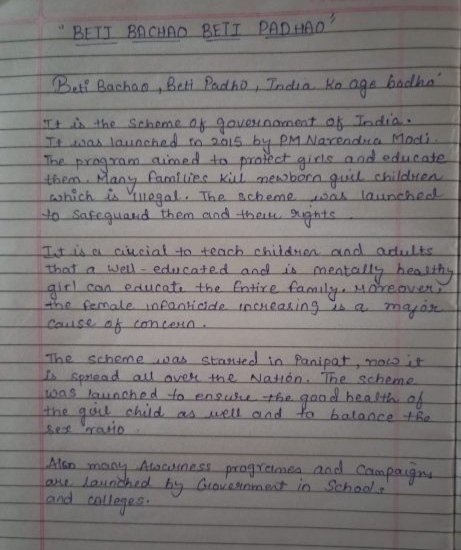 "BETI BACHAO BETI PADHAO"
Beti Bachao, Beti Padho, India ko age badho
It is the Scheme of governament of India.
It was launched in 2015 by PM Narendra Modi.
The program aimed to protect girls and educate
them. Many families kill newborn girl children
which is illegal. The scheme was launched
to safeguard them and their rights
It is a crucial to teach children and adults
that a well-educated and is mentally healthy
girl can educate the Entire family. Moreover,
the female infanticide increasing is a major
cause of concern.
The scheme was started in Panipat, now it
is spread all over the Nation. The scheme
was launched to ensure the good health of
the girl child as well and to balance the
sex ratio.
Also many Awarness programes and Campaigns
are launched by Government in Schools
and colleges.